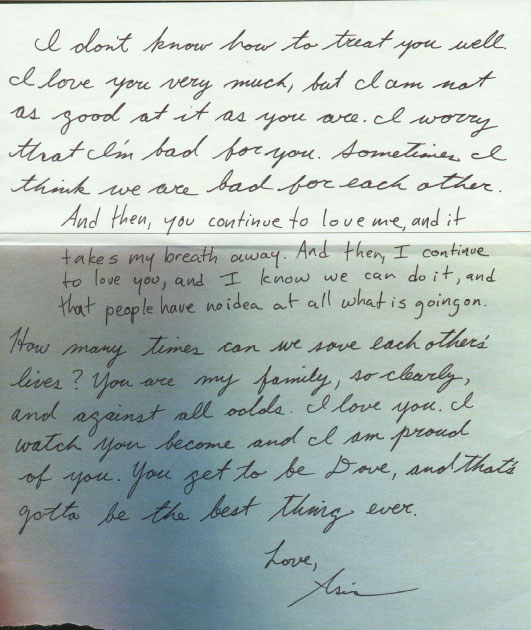 I don't know how to treat you well.
I love you very much, but I am not
as good at it as you are. I worry
that I'm bad for you. Sometimes I
think we are bad for each other.
And then, you continue to love me, and it
takes my breath away. And then, I continue
to love you, and I know we can do it, and
that people have no idea at all what is going on.
How many times can we save each others'
lives? You are my family, so clearly,
and against all odds. I love you. I
watch you become and I am proud
of you. You get to be Dove, and that's
gotta be the best thing ever.
Love,